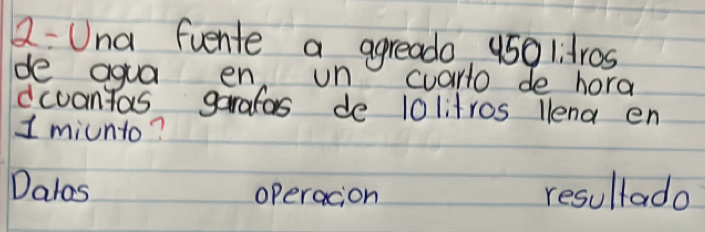 2-Una fuente a agreado 450 litros
de agua en un cuarto de hora
dcuantas garafas de 10 litros llena en
1 miunto?
Datos operacion resultado